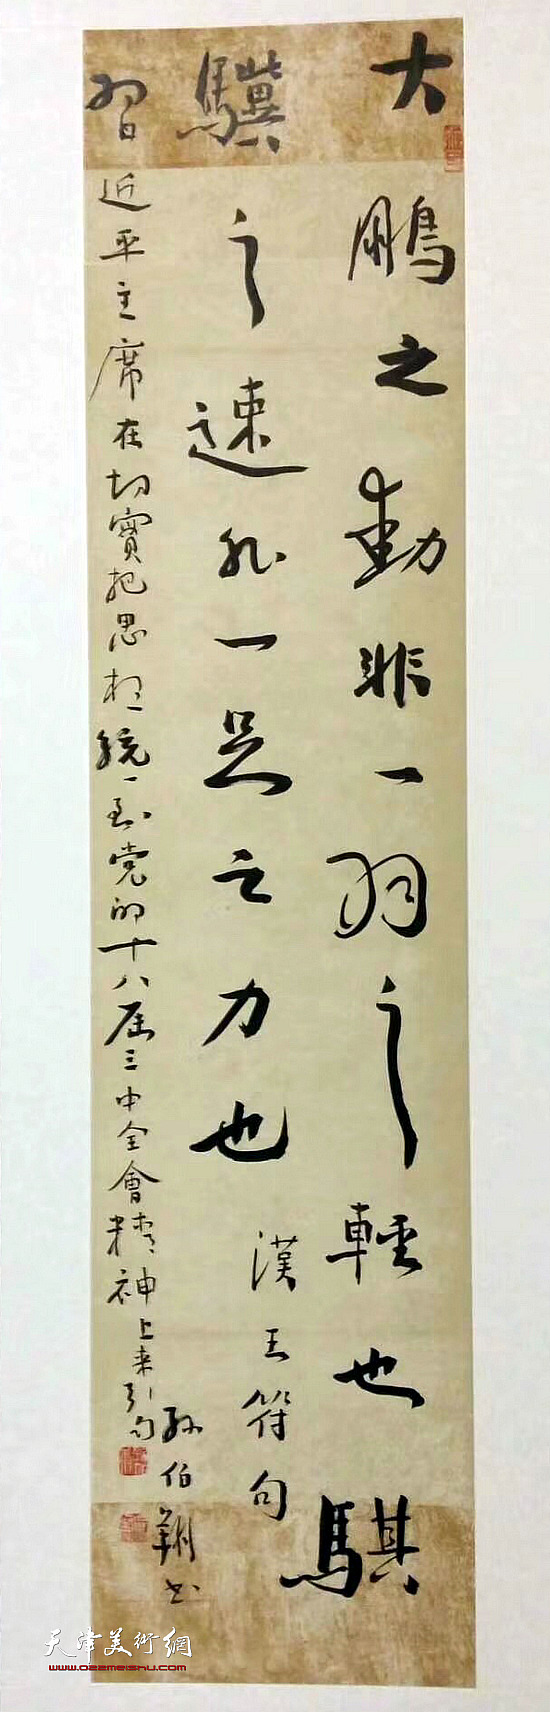 大鵬之動非一羽之輕也騏
驥之速非一足之力也
漢王符句
習近平主席在切實把思想統一到党的十八届三中全會精神上来引句
孫伯翔书
天津美術網
www.022meishu.com